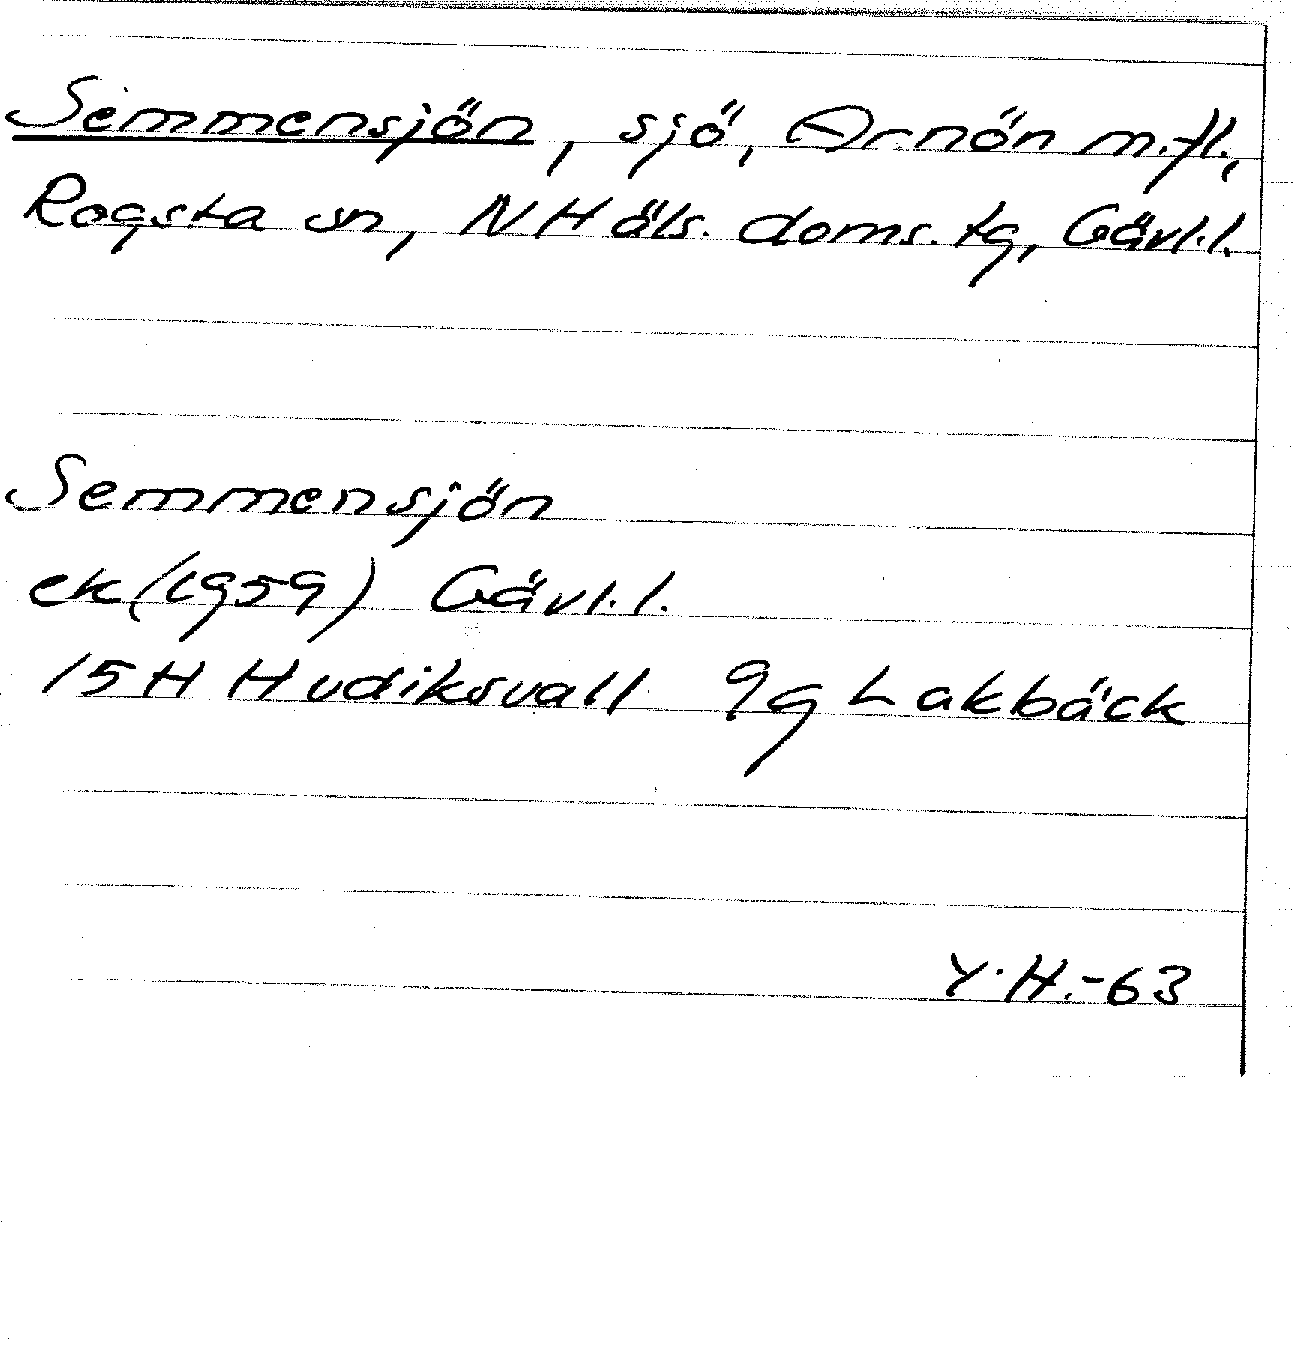 Semmensjön, sjö, Arnön m.fl.,
Rogsta sn, NHäls. doms. tg, Gävl.l.
Semmensjön
ek(1959) Gävl.l.
15H Hudiksvall 9g Lakbäck
Y.H.-63